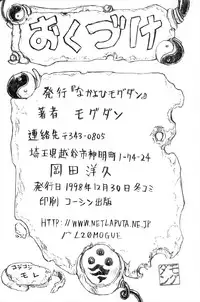 おくづけ
発行『なかよひモグダン』
著者 モグダン
連絡先 〒343-0805
埼玉県越谷市神明町1-74-24
岡田洋久
発行日 1998年12月30日 冬コミ
印刷 コーシン出版
HTTP://WWW.NETLAPUTA.NE.JP
/~L20MOGUE
コデコン
モレ